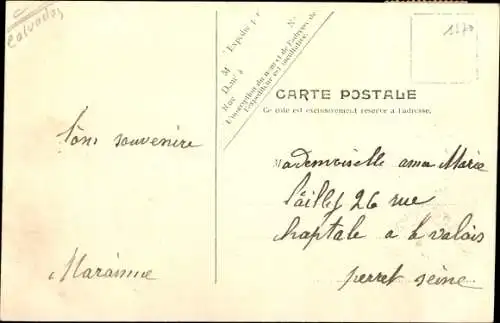 Calvados
1270
N°
Expédié P
M
Dem^t à
Rue
L'inscription du nom et de l'adresse de
l'expéditeur est facultative.
CARTE POSTALE
Ce côté est exclusivement réservé à l'adresse.
bons souvenire
Mademoiselle anna Marie
26 rue
Chaptale a le valois
perret seine